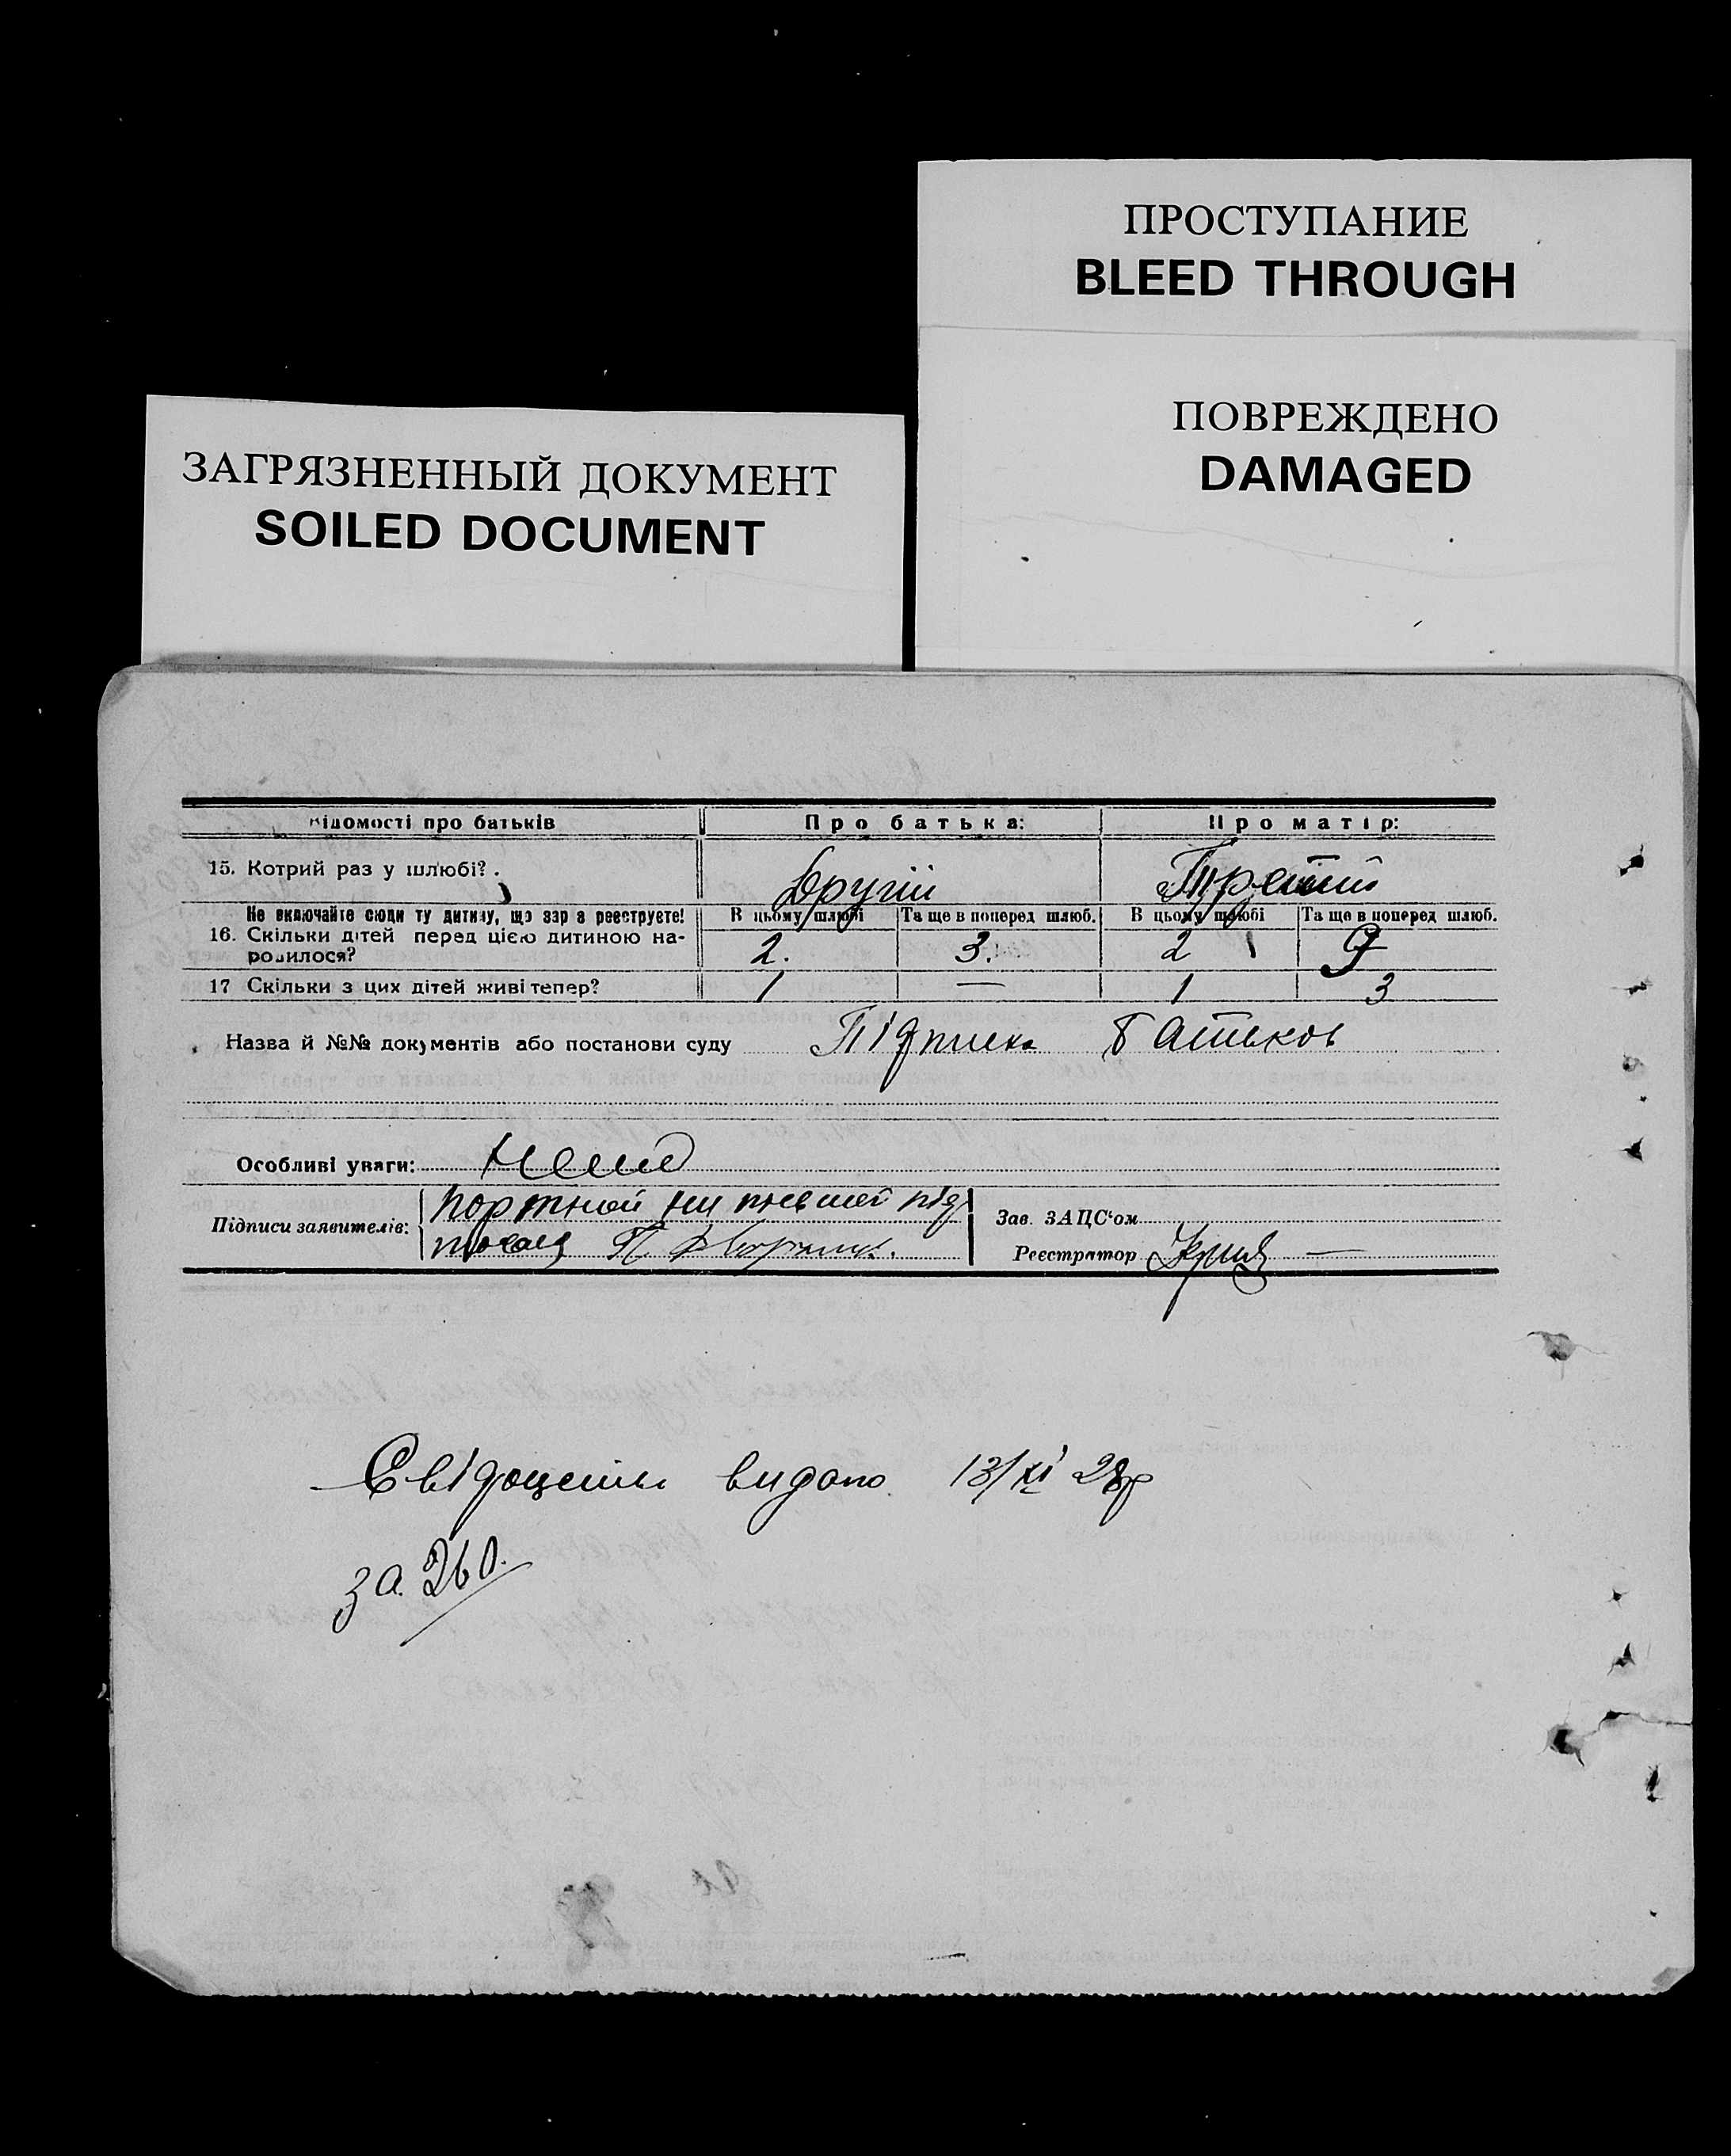 ПРОСТУПАНИЕ
BLEED THROUGH
ПОВРЕЖДЕНО
DAMAGED
ЗАГРЯЗНЕННЫЙ ДОКУМЕНТ
SOILED DOCUMENT
Відомості про батьків Про батька: Про матір:
15. Котрий раз у шлюбі? . Другій Третій
Не включайте сюди ту дитину, що зараз реєструєте! В цьому шлюбі Та ще в поперед шлюб. В цьому шлюбі Та ще в поперед шлюб.
16. Скільки дітей перед цією дитиною на- 2. 3. 2 9
родилося?
17 Скільки з цих дітей живі тепер? 1 — 1 3
Назва й №№ документів або постанови суду Підписка батьков
Особливі уваги:
Підписи заявителів:
Зав. ЗАЦС'ом
Реєстратор —
Свідоцтво видано 13/XI 28р
за 260.